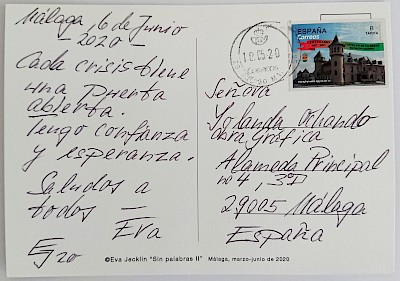 Málaga, 6 de Junio
2020 —
Cada crisis tiene
una puerta
abierta.
Tengo confianza
y esperanza.
Saludos a
todos —
Eva
EJ 20
ESPAÑA
Correos
B
TARIFA
18 05 20
Señora
Yolanda Ochando
Obra Gráfica
Alameda Principal
nº 4, 3º
29005 Málaga
España
©Eva Jecklin "Sin palabras II" Málaga, marzo-junio de 2020